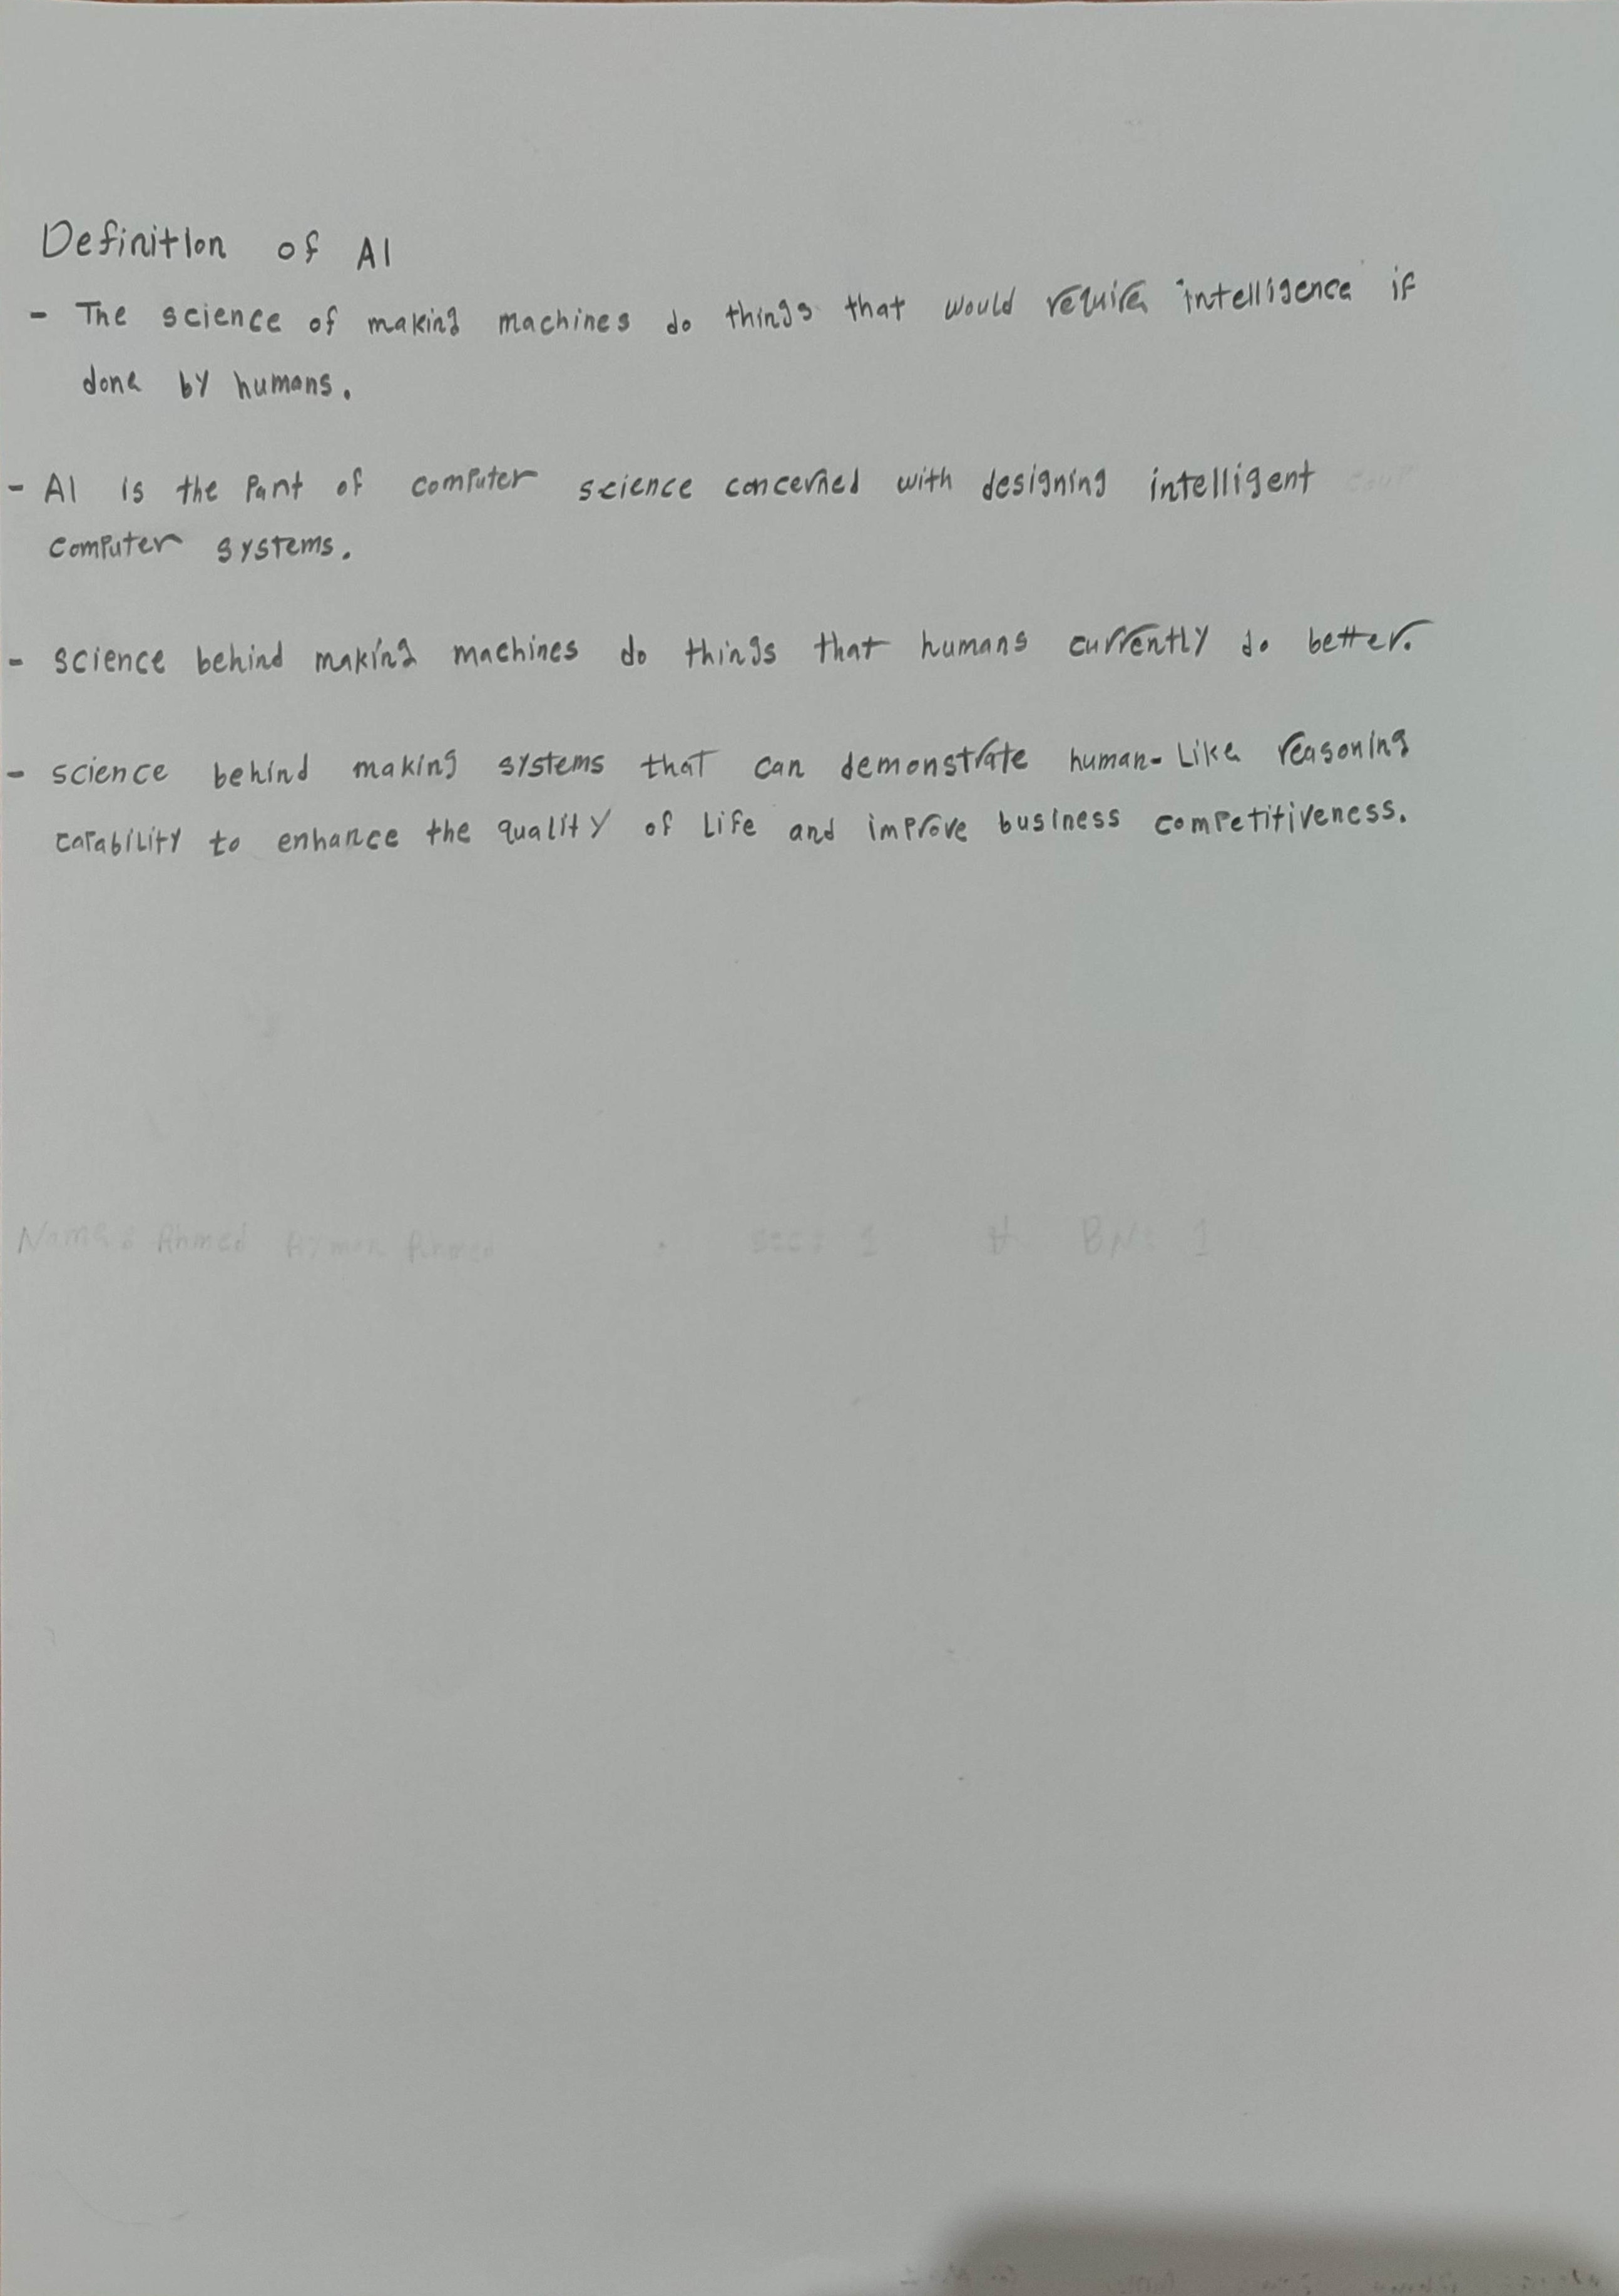 Definition of AI
- The science of making machines do things that would require intelligence if
done by humans.
- AI is the Part of computer science concerned with designing intelligent
computer systems.
- science behind making machines do things that humans currently do better.
- science behind making systems that can demonstrate human-Like reasoning
capability to enhance the quality of Life and improve business competitiveness.
Name: Ahmed Ayman Ahmed sec: 1 BN: 1